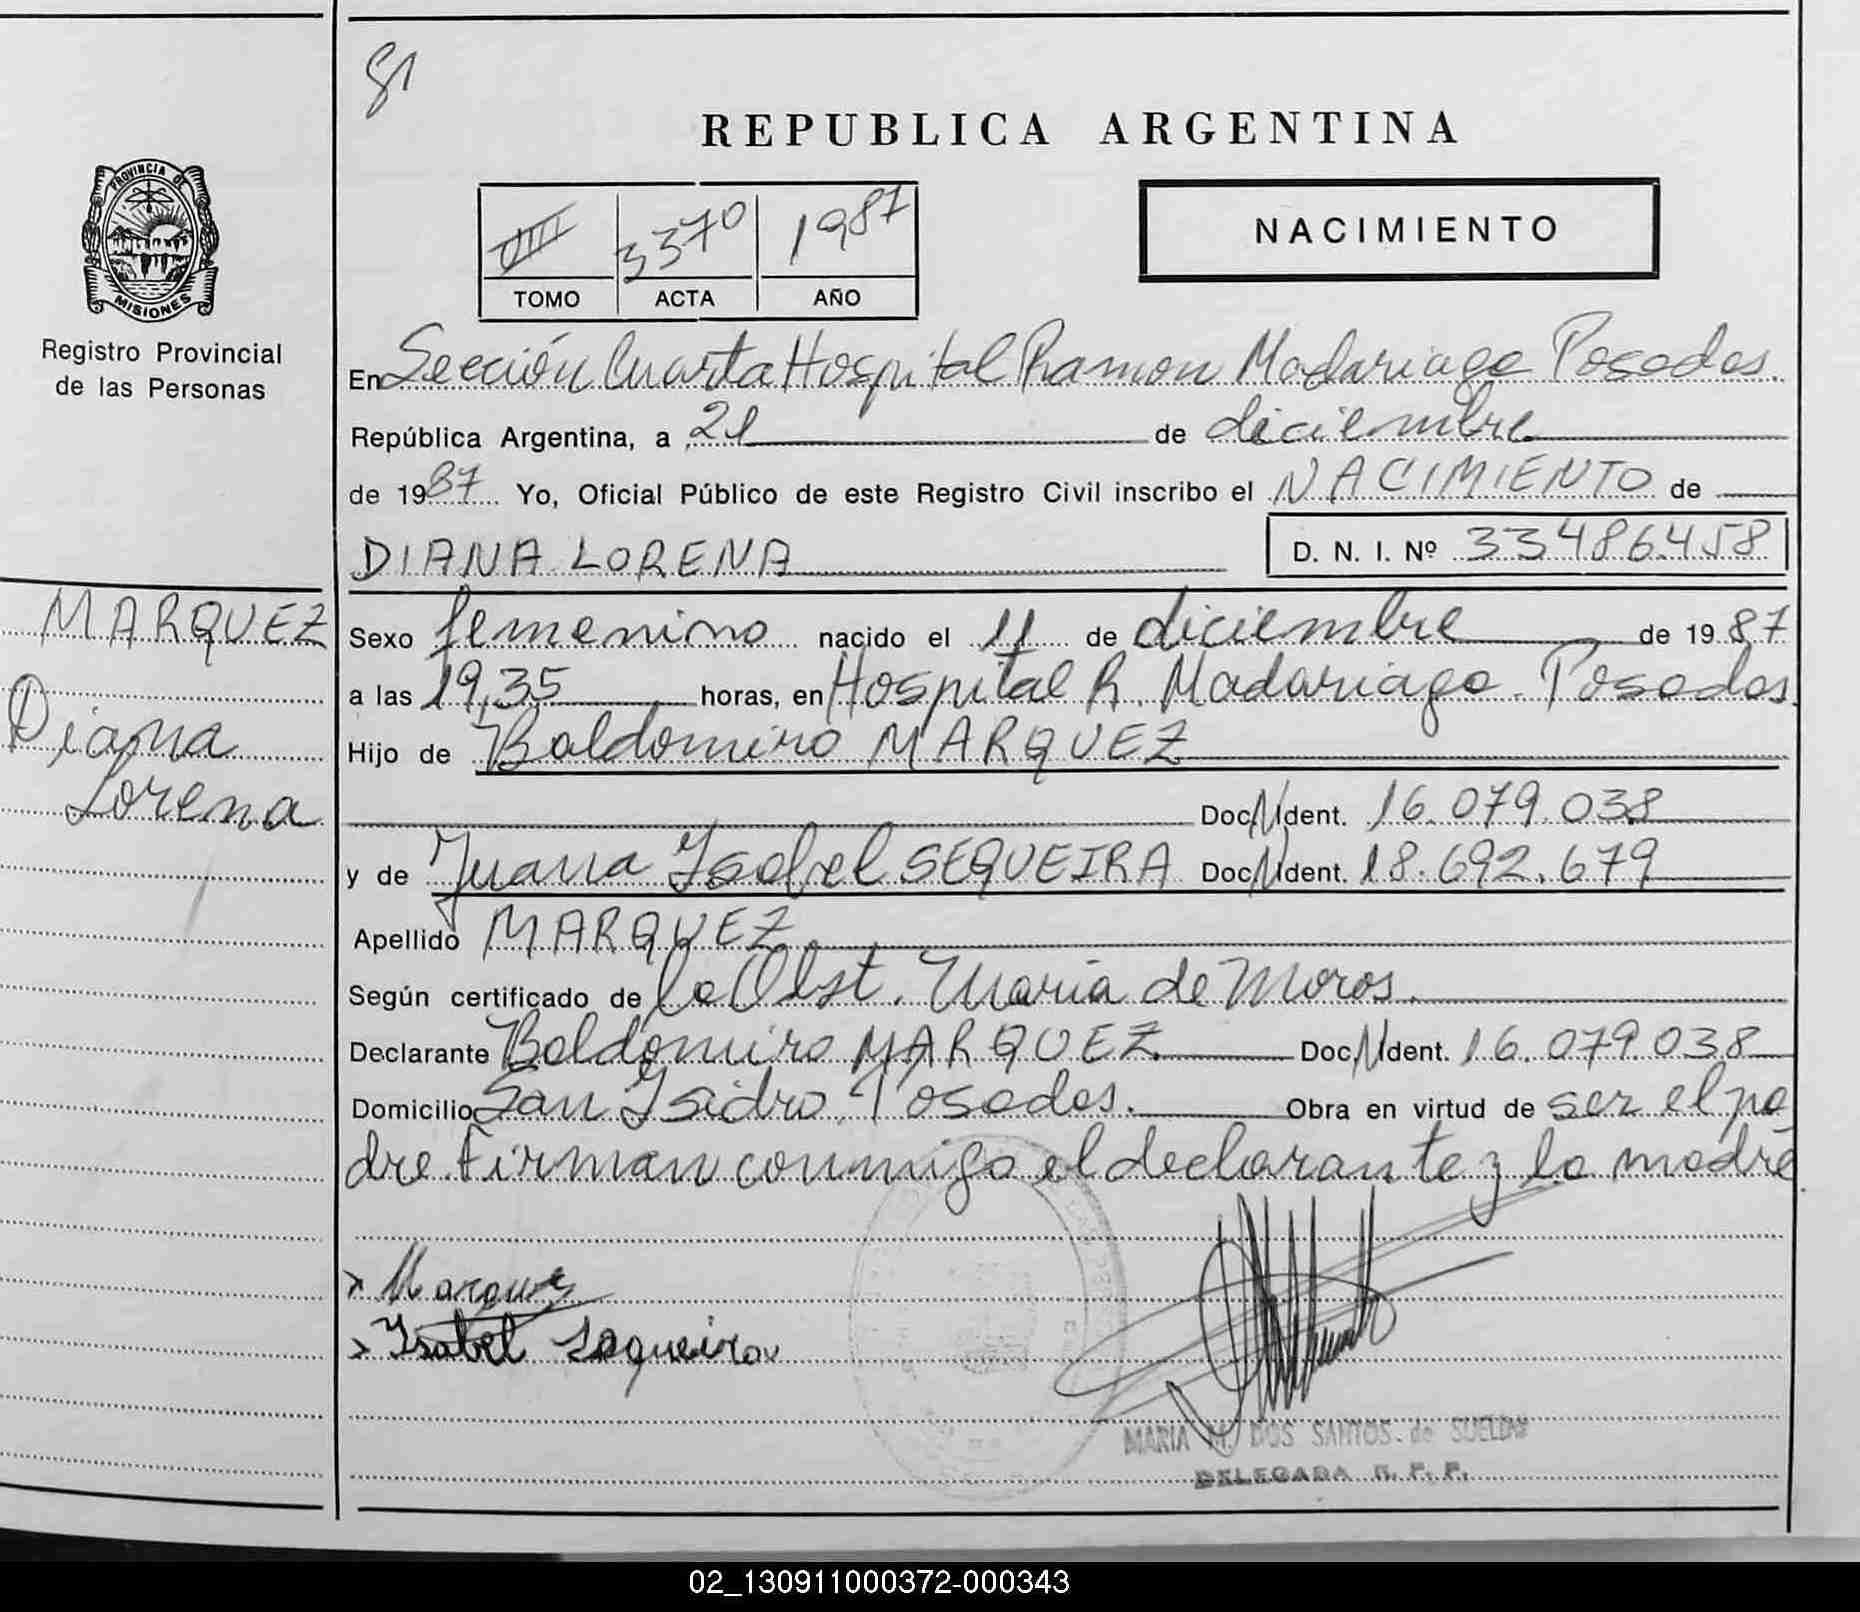 81
REPUBLICA ARGENTINA
PROVINCIA DE
MISIONES
Registro Provincial
de las Personas
VIII 3370 1987
TOMO ACTA AÑO
NACIMIENTO
En Sección Cuarta Hospital Ramon Madariaga Posadas.
República Argentina, a 21 de diciembre
de 1987 Yo, Oficial Público de este Registro Civil inscribo el NACIMIENTO de
DIANA LORENA D. N. I. Nº 33486458
MARQUEZ
Diana
Lorena
Sexo femenino nacido el 11 de diciembre de 1987
a las 19,35 horas, en Hospital R. Madariaga - Posadas.
Hijo de Baldomero MARQUEZ
Doc. N Ident. 16.079.038
y de Juana Isabel SEQUEIRA Doc. N Ident. 18.692.679
Apellido MARQUEZ
Según certificado de la Obst. Maria de Moros.
Declarante Baldomero MARQUEZ Doc. N Ident. 16.079.038
Domicilio San Isidro, Posadas. Obra en virtud de ser el pa
dre. Firman conmigo el declarante y la madre
Marquez
Isabel Sequeira
MARIA M. DOS SANTOS de
DELEGADA R. P. P.
02_130911000372-000343